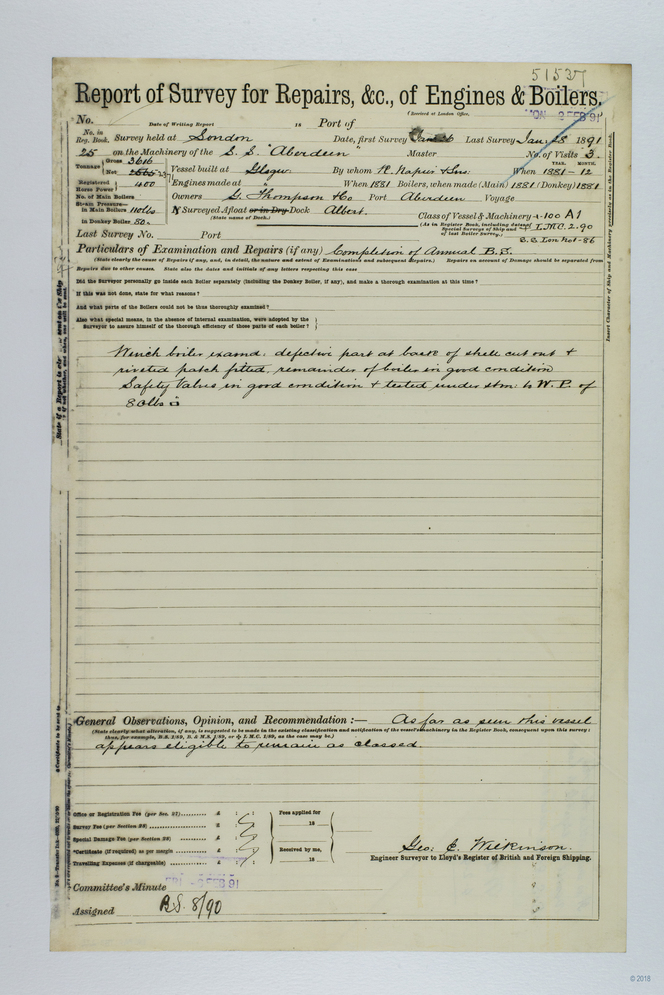 51537
Report of Survey for Repairs, &c., of Engines & Boilers.
(Received at London Office,
MON 2 FEB 91
No. Date of Writing Report 18 Port of
No. in Reg. Book. Survey held at London Date, first Survey Last Survey Jan. 28 1891
25 on the Machinery of the S. S. "Aberdeen" Master No. of Visits 3.
Tonnage Gross 3616 Net 2371
Vessel built at Glsgw. By whom R. Napier & Sns. YEAR. MONTH. When 1881 - 12
Registered Horse Power 400 Engines made at " When 1881 Boilers, when made (Main) 1881 (Donkey) 1881
No. of Main Boilers Owners G. Thompson & Co Port Aberdeen Voyage
Steam Pressure— in Main Boilers 110lbs in Donkey Boiler 80. If Surveyed Afloat or in Dry Dock Albert. (State name of Dock.)
Class of Vessel & Machinery + 100 A1
(As in Register Book, including dates of Special Surveys of Ship and of last Boiler Survey.) + L.M.C. 2.90
B.S. Lon Rot-86
Last Survey No. Port
Particulars of Examination and Repairs (if any) Completion of Annual B.S.
(State clearly the cause of Repairs if any, and, in detail, the nature and extent of Examinations and subsequent Repairs.) Repairs on account of Damage should be separated from
Repairs due to other causes. State also the dates and initials of any letters respecting this case
Did the Surveyor personally go inside each Boiler separately (including the Donkey Boiler, if any), and make a thorough examination at this time?
If this was not done, state for what reasons?
And what parts of the Boilers could not be thus thoroughly examined?
Also what special means, in the absence of internal examination, were adopted by the
Surveyor to assure himself of the thorough efficiency of those parts of each boiler?
Winch boiler examd: defective part at back of shell cut out &
riveted patch fitted, remainder of boiler in good condition
Safety Valves in good condition & tested under stm: to W.P. of
80lbs
General Observations, Opinion, and Recommendation :— As far as seen this vessel
(State clearly what alteration, if any, is suggested to be made in the existing classification and notification of the vessel's machinery in the Register Book, consequent upon this survey;
thus, for example, B.S. 1/89, B. & M.S. 1/89, or L.M.C. 1/89, as the case may be.)
appears eligible to remain as classed.
Office or Registration Fee (per Sec. 27) £ : :
Survey Fee (per Section 28) £ : :
Special Damage Fee (per Section 28) £ : :
*Certificate (if required) as per margin £ : :
Travelling Expenses (if chargeable) £ : :
Fees applied for
18
Received by me,
18
Geo: E. Wilkinson.
Engineer Surveyor to Lloyd's Register of British and Foreign Shipping.
Committee's Minute FRI 6 FEB 91
Assigned B.S. 8/90
Insert Character of Ship and Machinery precisely as in the Register Book.
© 2018